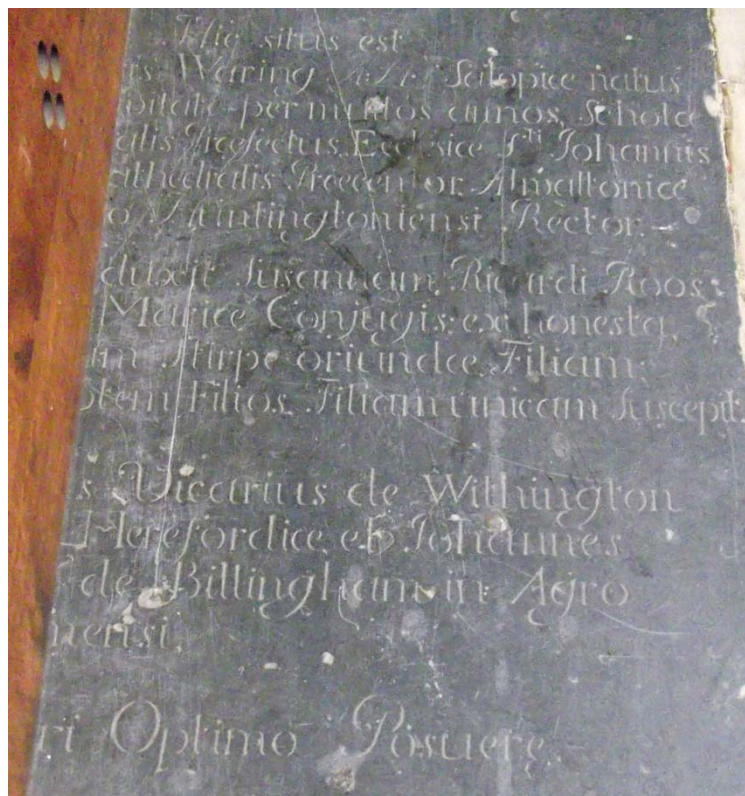 Hic situs est
is Waring A: M: Salopiæ natus
per multos annos, Scholæ
alis Præfectus, Ecclesiæ Sti Johannis
athedralis Præcentor, Almallonicæ
o Huntingtoniensi Rector.
duxit Susannam, Ricardi Roos
Mariæ Conjugis, ex honesta,
m Stirpe oriundæ, Filiam;
ptem Filios, Filiam unicam suscepit:
s Vicarius de Withington
Herefordiæ, et Johannes
de Billingham in Agro
nensi,
ri Optimo Posuere.